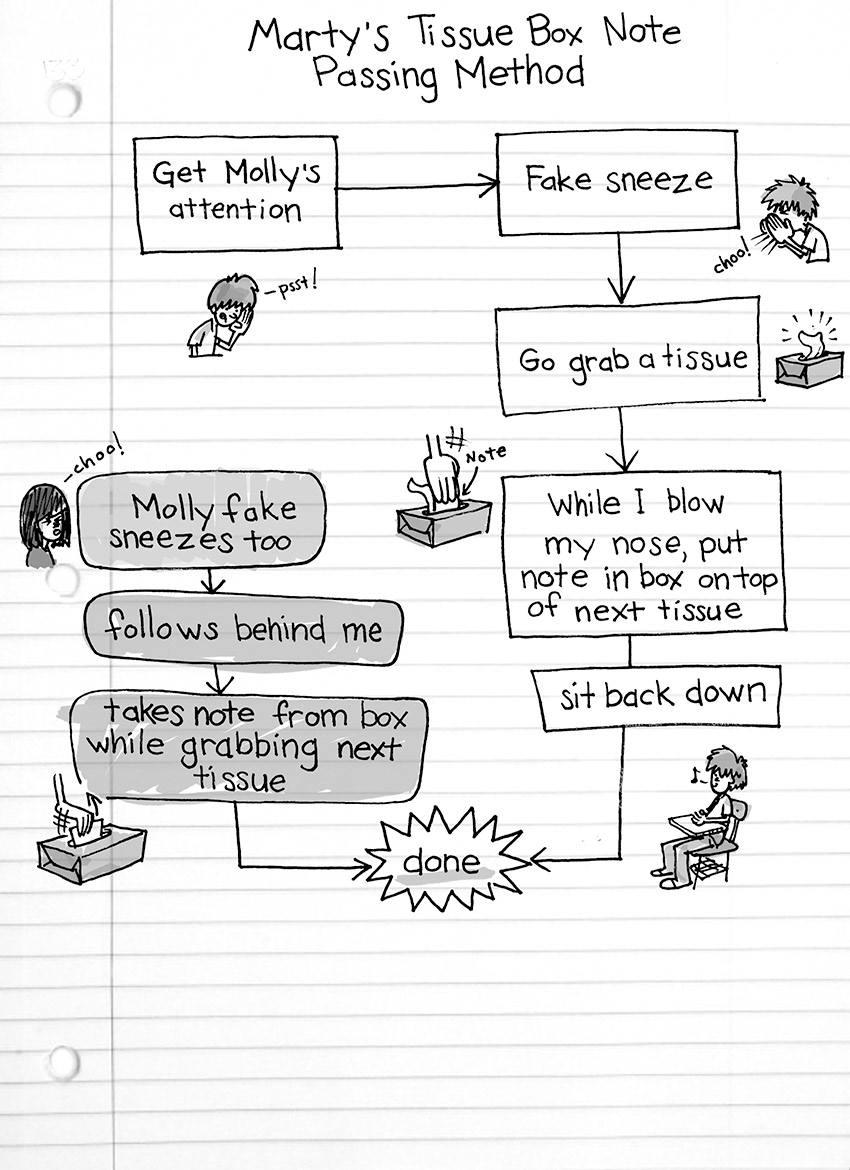 Marty's Tissue Box Note
Passing Method
Get Molly's
attention
Fake sneeze
choo!
-psst!
Go grab a tissue
Note
While I blow
my nose, put
note in box on top
of next tissue
sit back down
-choo!
Molly fake
sneezes too
follows behind me
takes note from box
while grabbing next
tissue
done